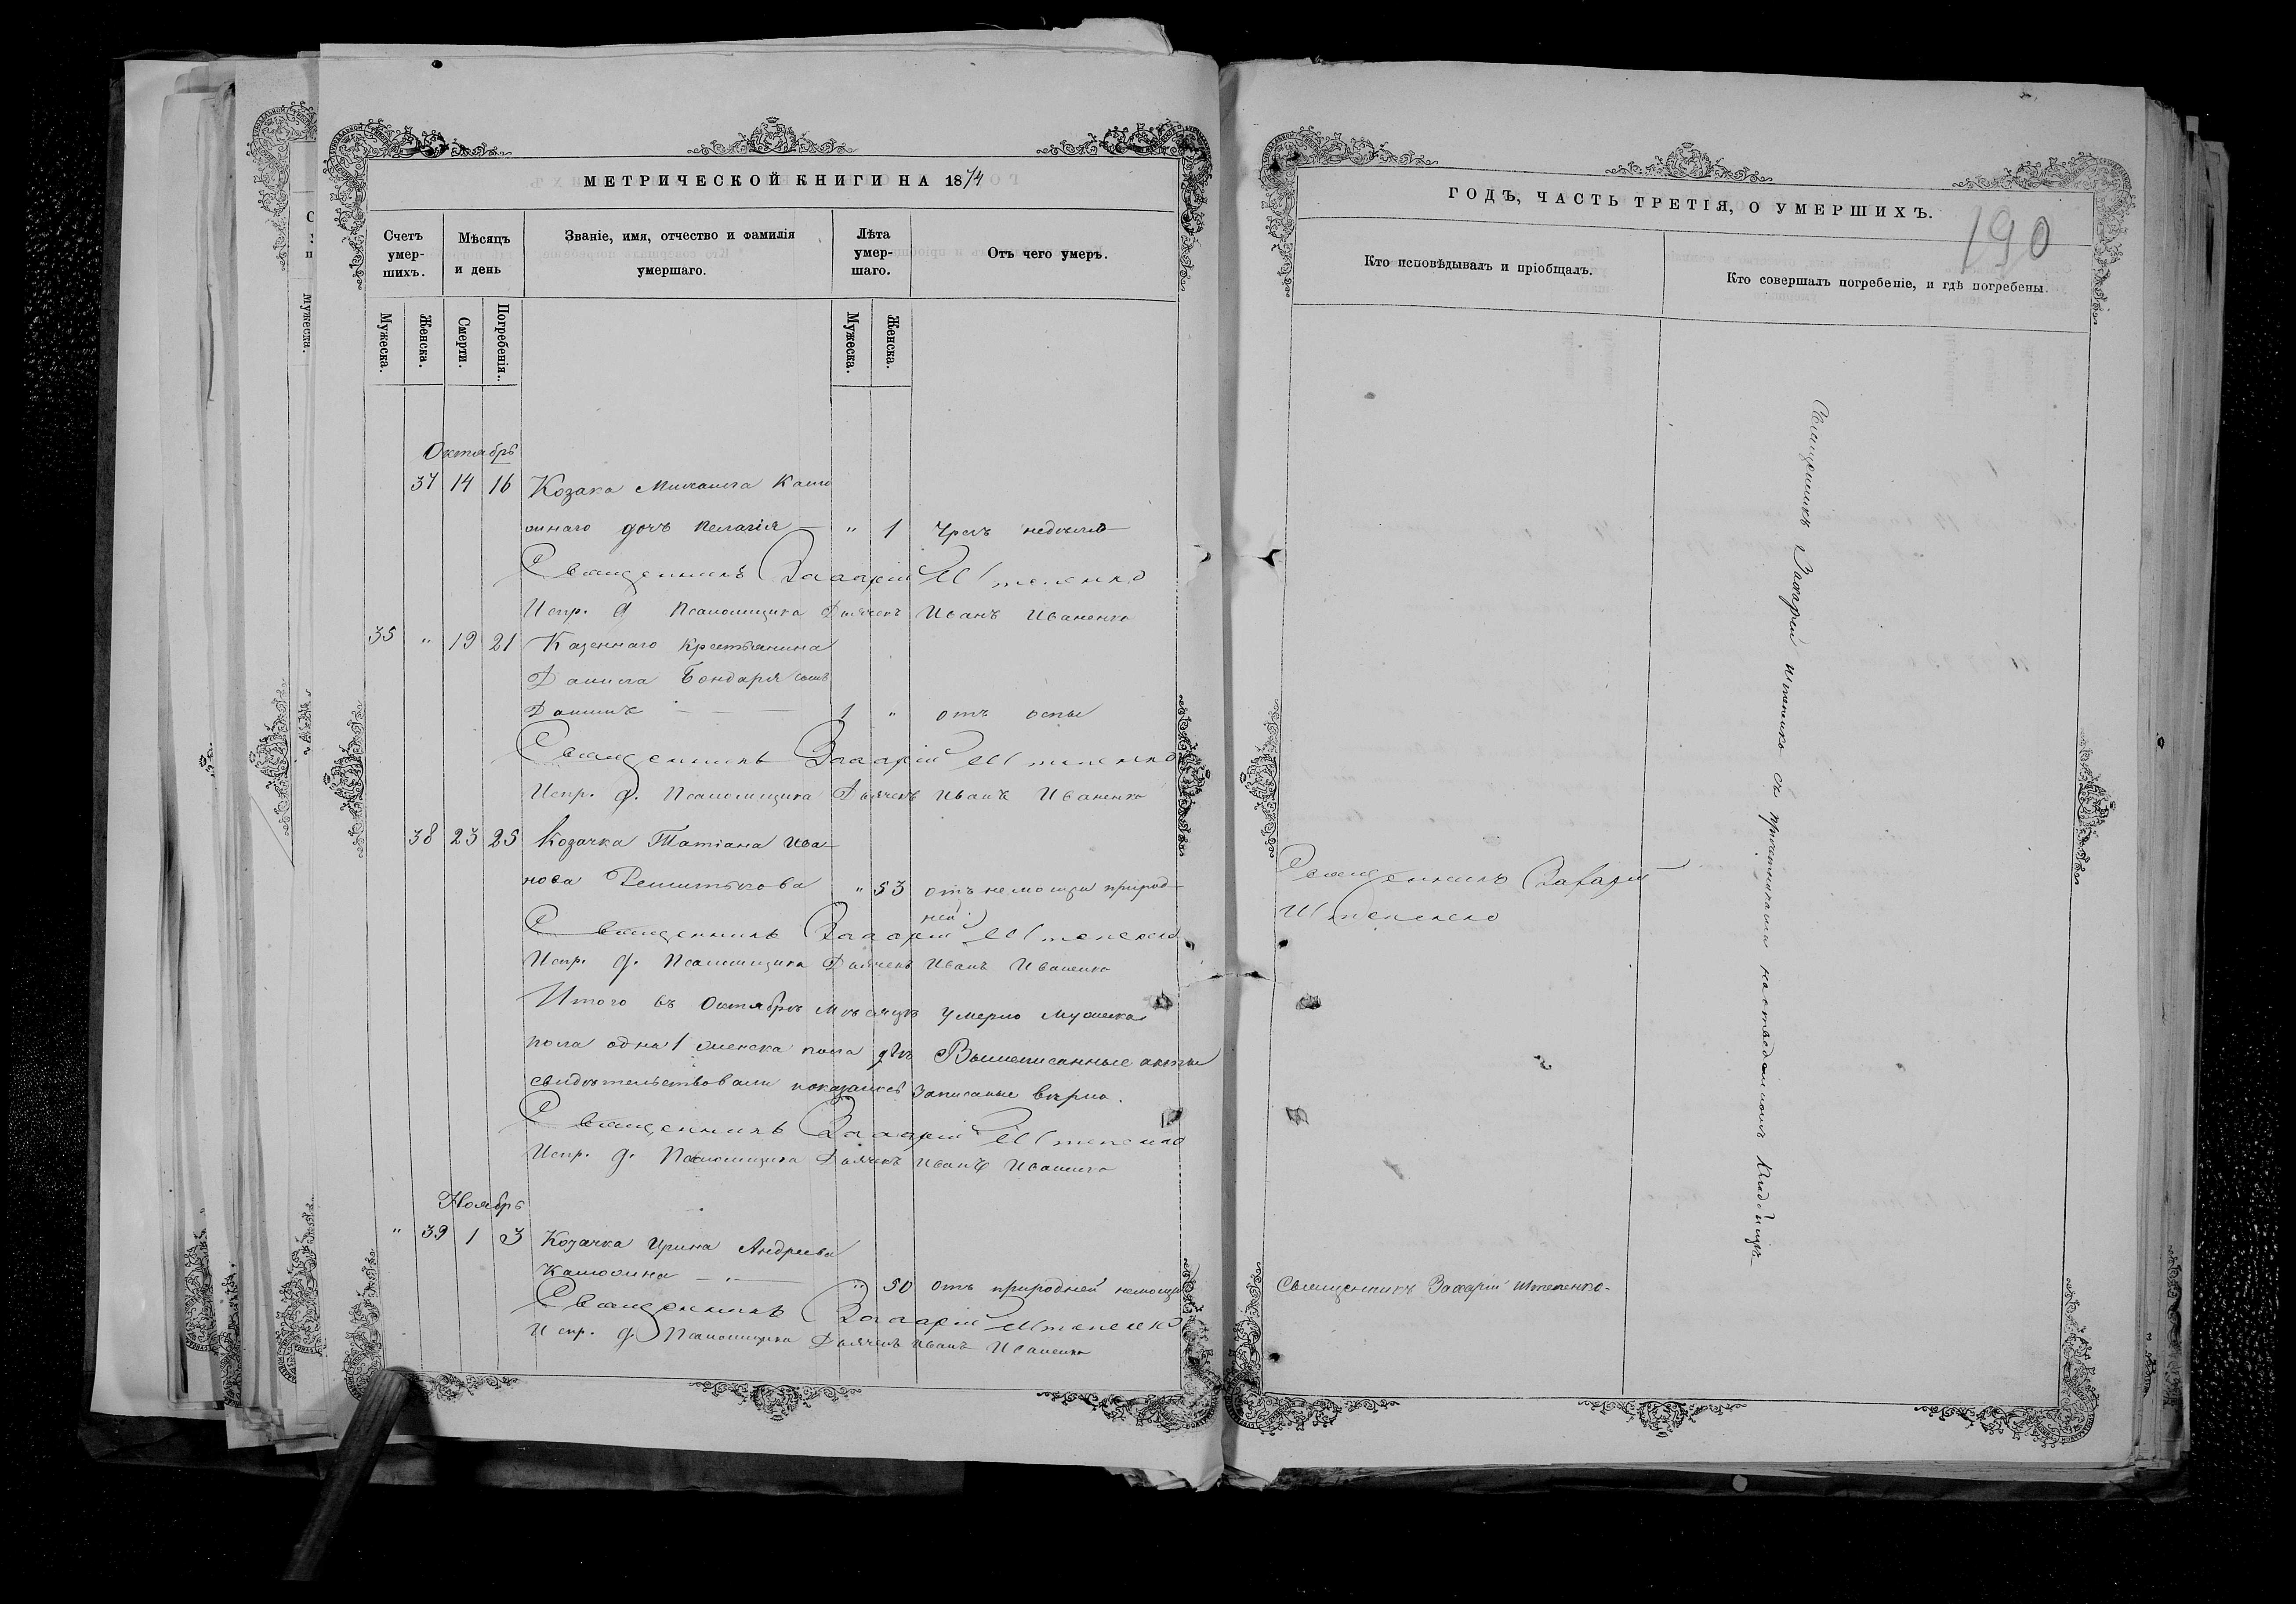 МЕТРИЧЕСКОЙ КНИГИ НА 1874
Счетъ умер-шихъ.
Мѣсяцъ и день
Званіе, имя, отчество и фамилія умершаго.
Лѣта умер-шаго.
Отъ чего умеръ.
Мужеска.
Женска.
Смерти.
Погребенія.
Мужеска.
Женска.
Октябрь
37 14 16 Козака Михаила
дочь Пелагія — " 1
Священникъ Захарій Штепенко
Испр. д. Псаломщика Дьячекъ Иванъ Иваненко
35 " 19 21 Казеннаго крестьянина
Данила Бондаря сынъ
1 " отъ оспы
Священникъ Захарій Штепенко
Испр. д. Псаломщика Дьячекъ Иванъ Иваненко
38 23 25 Козачка Татіана Ива
нова " 53 отъ немощи природ
ней.
Священникъ Захарій Штепенко
Испр. д. Псаломщика Дьячекъ Иванъ Иваненко
Итого въ Октябрѣ мѣсяцѣ умерло мужеска
пола одна 1 женска пола двѣ Вышеписанные акты
свидѣтельствовали записаные вѣрно.
Священникъ Захарій Штепенко
Испр. д. Псаломщика Дьячекъ Иванъ Иваненко
Ноябрь
" 39 1 3 Козачка Ирина Андреева
" 50 отъ природней немощи
Священникъ Захарій Штепенко
Испр. д. Псаломщика Дьячекъ Иванъ Иваненко
ГОДЪ, ЧАСТЬ ТРЕТІЯ, О УМЕРШИХЪ.
190
Кто исповѣдывалъ и пріобщалъ.
Кто совершалъ погребеніе, и гдѣ погребены.
Священникъ Захарій Штепенко съ причетниками на кладбищѣ
Священникъ Захарій
Штепенко
Священникъ Захарій Штепенко